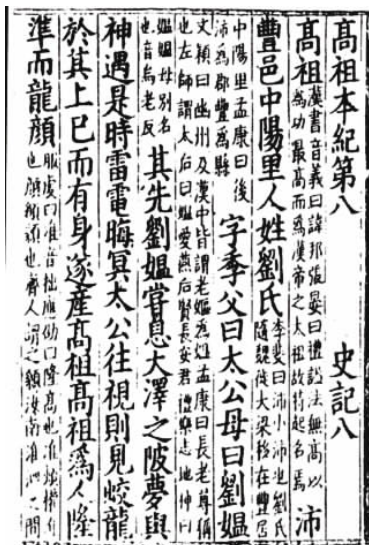 高祖本紀第八 史記八
高祖漢書音義曰諱邦張晏曰禮諡法無高以為功最高而為漢帝之太祖故特起名焉沛
豐邑中陽里人姓劉氏李斐曰沛小沛也劉氏隨魏徙大梁移在豐居
中陽里孟康曰後沛為郡豐為縣字季父曰太公母曰劉媼
文穎曰幽州及漢中皆謂老嫗為媼孟康曰長老尊稱也左師謂太后曰媼愛燕后賢長安君禮樂志地神曰
媼媼母別名也音烏老反其先劉媼嘗息大澤之陂夢與
神遇是時雷電晦冥太公往視則見蛟龍
於其上已而有身遂產高祖高祖為人隆
準而龍顏服虔曰准音拙應劭曰隆高也准頰權也顏頟顙也齊人謂之顙汝南淮泗之間